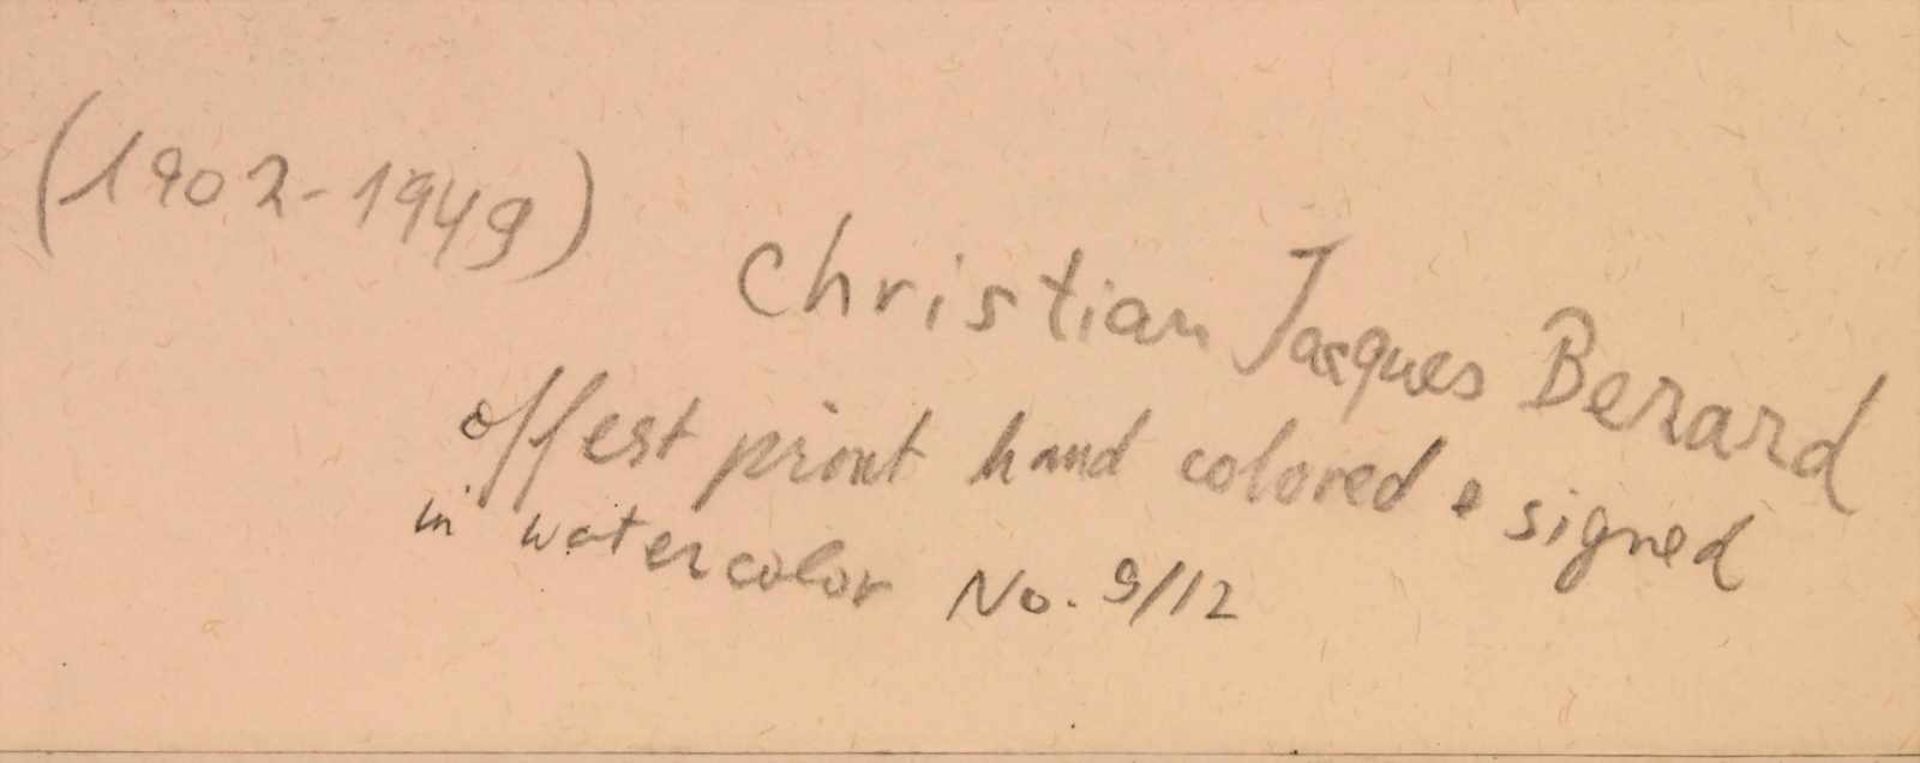 (1902-1949) Christian Jacques Berard
offest print hand colored & signed
in watercolor No. 9/12